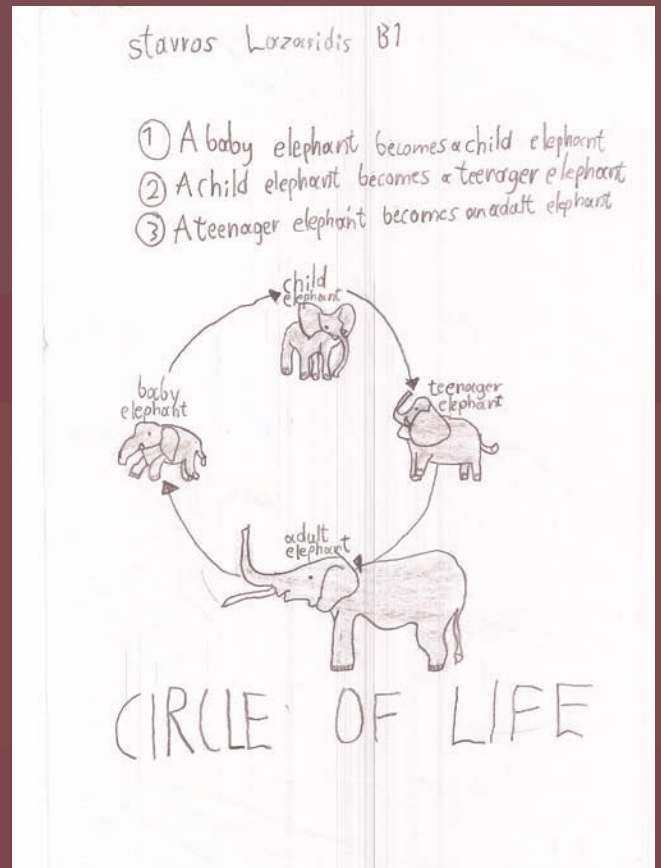 stavros Lazaridis B1
① A baby elephant becomes a child elephant
② A child elephant becomes a teenager elephant
③ A teenager elephant becomes an adult elephant
child
elephant
baby
elephant
teenager
elephant
adult
elephant
CIRCLE OF LIFE